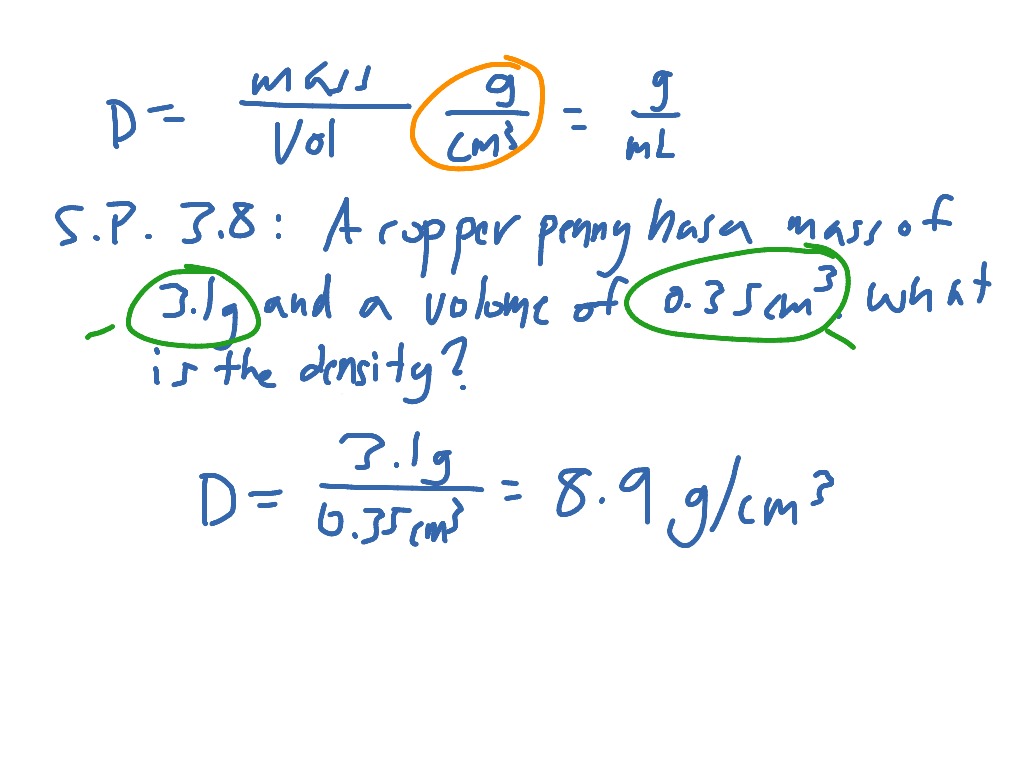 D = mass/Vol g/cm³ = g/mL
S.P. 3.8: A copper penny has a mass of
3.1g and a volume of 0.35cm³. what
is the density?
D = 3.1g/0.35cm³ = 8.9 g/cm³